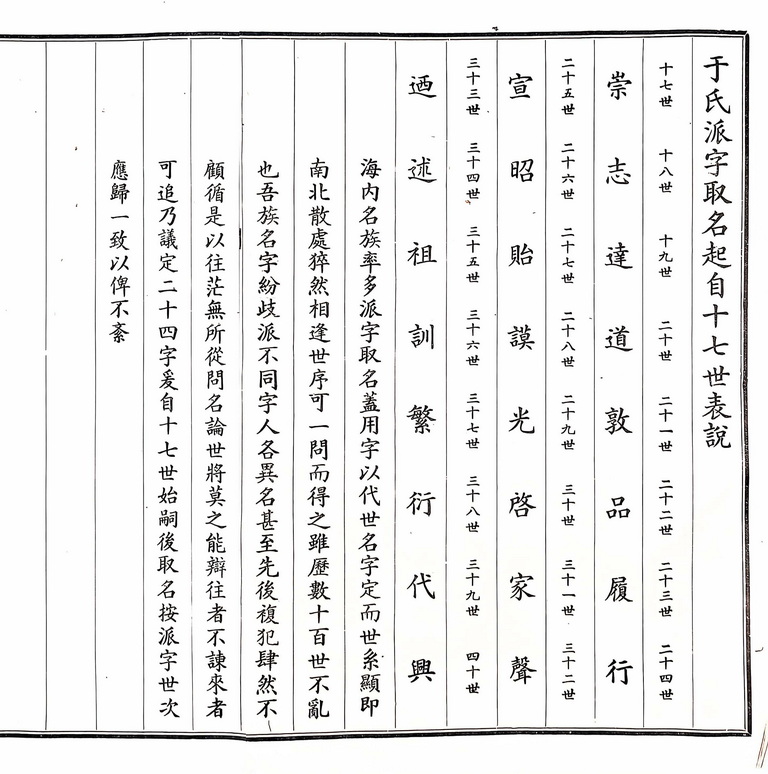 于氏派字取名起自十七世表説
十七世 十八世 十九世 二十世 二十一世 二十二世 二十三世 二十四世
崇 志 達 道 敦 品 履 行
二十五世 二十六世 二十七世 二十八世 二十九世 三十世 三十一世 三十二世
宣 昭 貽 謨 光 啓 家 聲
三十三世 三十四世 三十五世 三十六世 三十七世 三十八世 三十九世 四十世
迺 述 祖 訓 繁 衍 代 興
海内名族率多派字取名蓋用字以代世名字定而世系顯即
南北散處猝然相逢世序可一問而得之雖歷數十百世不亂
也吾族名字紛歧派不同字人各異名甚至先後複犯肆然不
顧循是以往茫無所從問名論世將莫之能辯往者不諫來者
可追乃議定二十四字爰自十七世始嗣後取名按派字世次
應歸一致以俾不紊